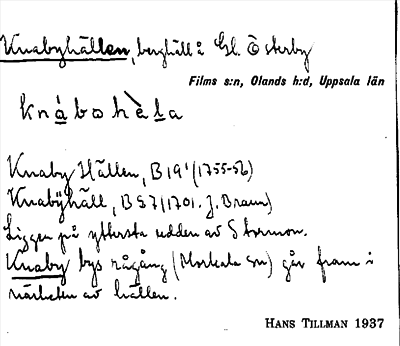 Knabyhällen, berghäll å Gl. Österby
Films s:n, Olands h:d, Uppsala län
knábohèla
Knaby Hällen, B 19¹ (1755-56)
Knabÿhäll, B 57 (1701. J. Braun)
Ligger på yttersta udden av Stormon.
Knaby bys rågång (Morkarla sn) går fram i
närheten av hällen.
HANS TILLMAN 1937